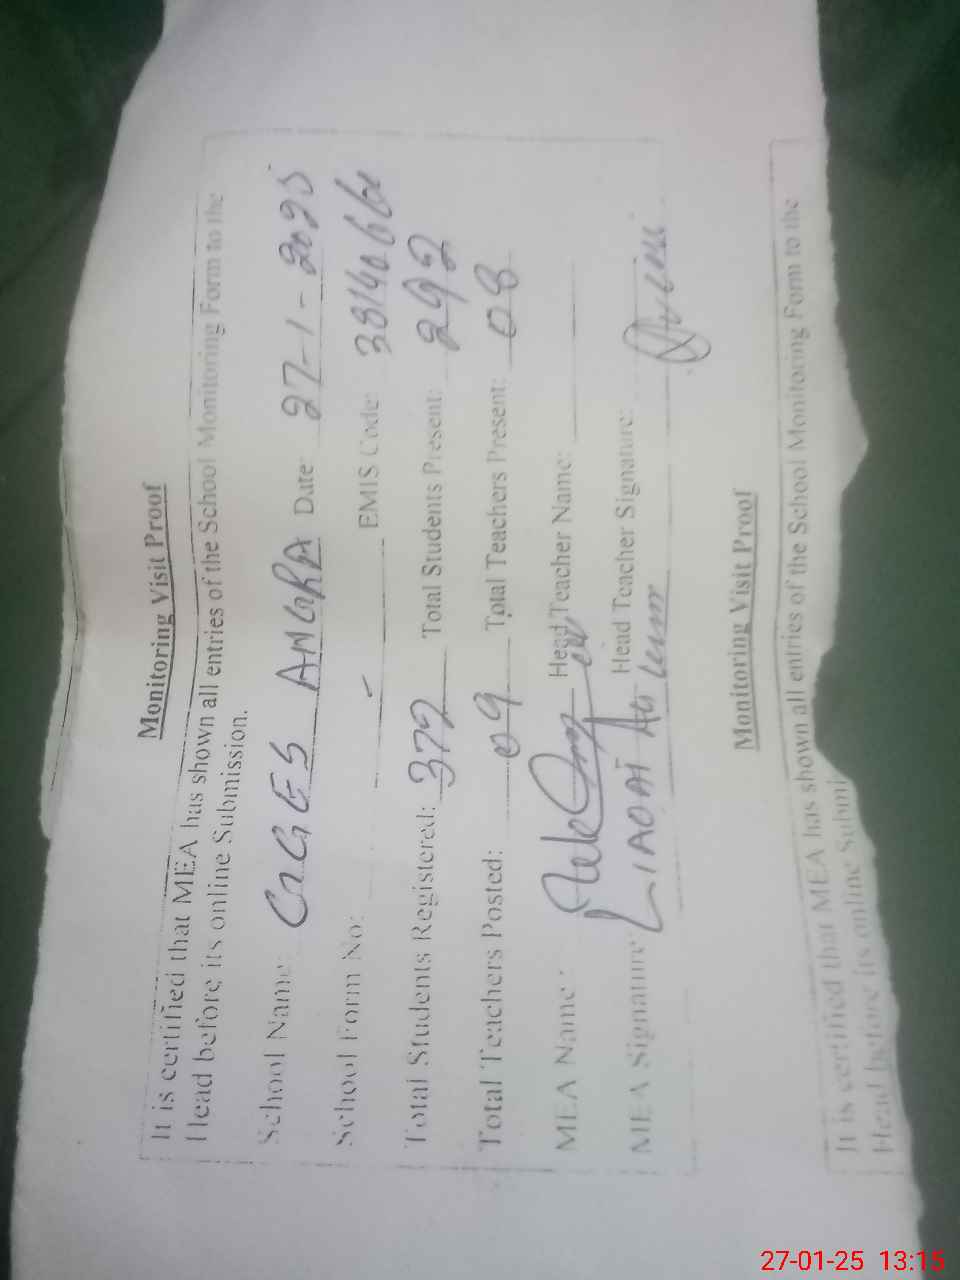 Monitoring Visit Proof
It is certified that MEA has shown all entries of the School Monitoring Form to the
Head before its online Submission.
School Name: GGES ANGRA Date: 27-1-2025
School Form No: - EMIS Code: 38140
Total Students Registered: 372 Total Students Present: 292
Total Teachers Posted: 09 Total Teachers Present: 08
MEA Name: Head Teacher Name:
MEA Signature: LIAQAT Ali Head Teacher Signature:
Monitoring Visit Proof
It is certified that MEA has shown all entries of the School Monitoring Form to the
Head before its online Submi
27-01-25 13:15